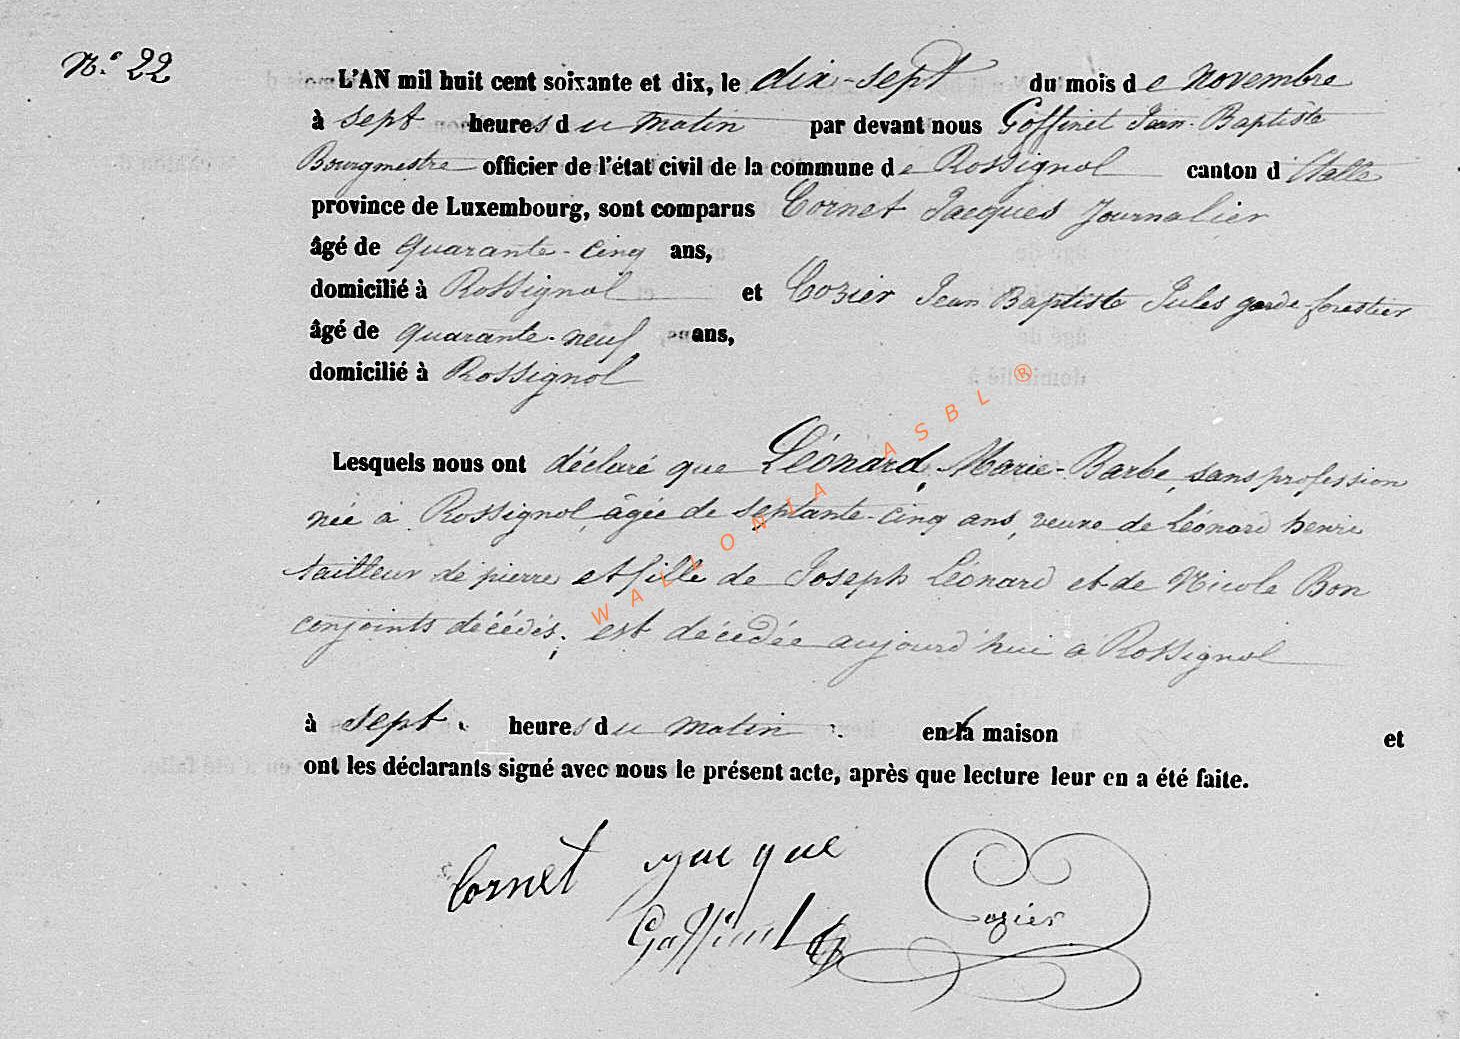 N.o 22
L'AN mil huit cent soixante et dix, le dix-sept du mois de novembre
à sept heures du matin par devant nous Goffinet Jean-Baptiste
Bourgmestre officier de l'état civil de la commune de Rossignol canton d'Etalle
province de Luxembourg, sont comparus Cornet Jacques Journalier
âgé de quarante-cinq ans,
domicilié à Rossignol et Cozier Jean Baptiste Jules garde-forestier
âgé de quarante-neuf ans,
domicilié à Rossignol
Lesquels nous ont déclaré que Léonard, Marie-Barbe, sans profession
née à Rossignol, âgée de septante-cinq ans, veuve de Léonard henri
tailleur de pierre et fille de Joseph Léonard et de Nicole Bon
conjoints décédés; est décédée aujourd'hui à Rossignol
à sept heures du matin en sa maison et
ont les déclarants signé avec nous le présent acte, après que lecture leur en a été faite.
Cornet jacque
Cozier
Goffinet
WALLONIA ASBL ®